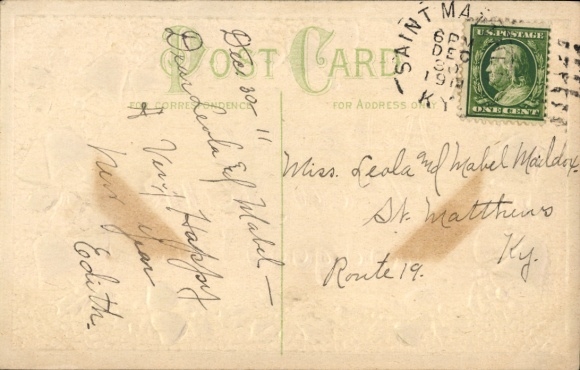 POST CARD
FOR CORRESPONDENCE
FOR ADDRESS ONLY
SAINT MA
6 PM
DEC
30
191
KY
U.S. POSTAGE
ONE CENT
Dec 30 11
Dear Leola and Mabel —
A Very Happy
New Year
Edith.
Miss. Leola and Mabel Maddox.
St. Matthews
Ky.
Route 19.